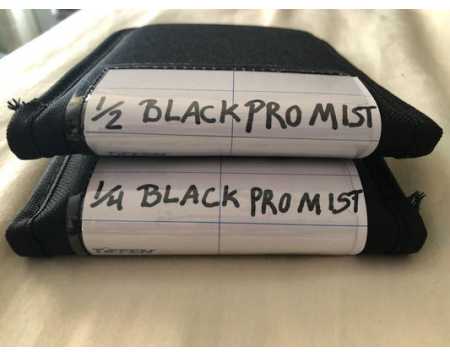 1/2 BLACK PRO MIST
1/4 BLACK PRO MIST
TIFFEN